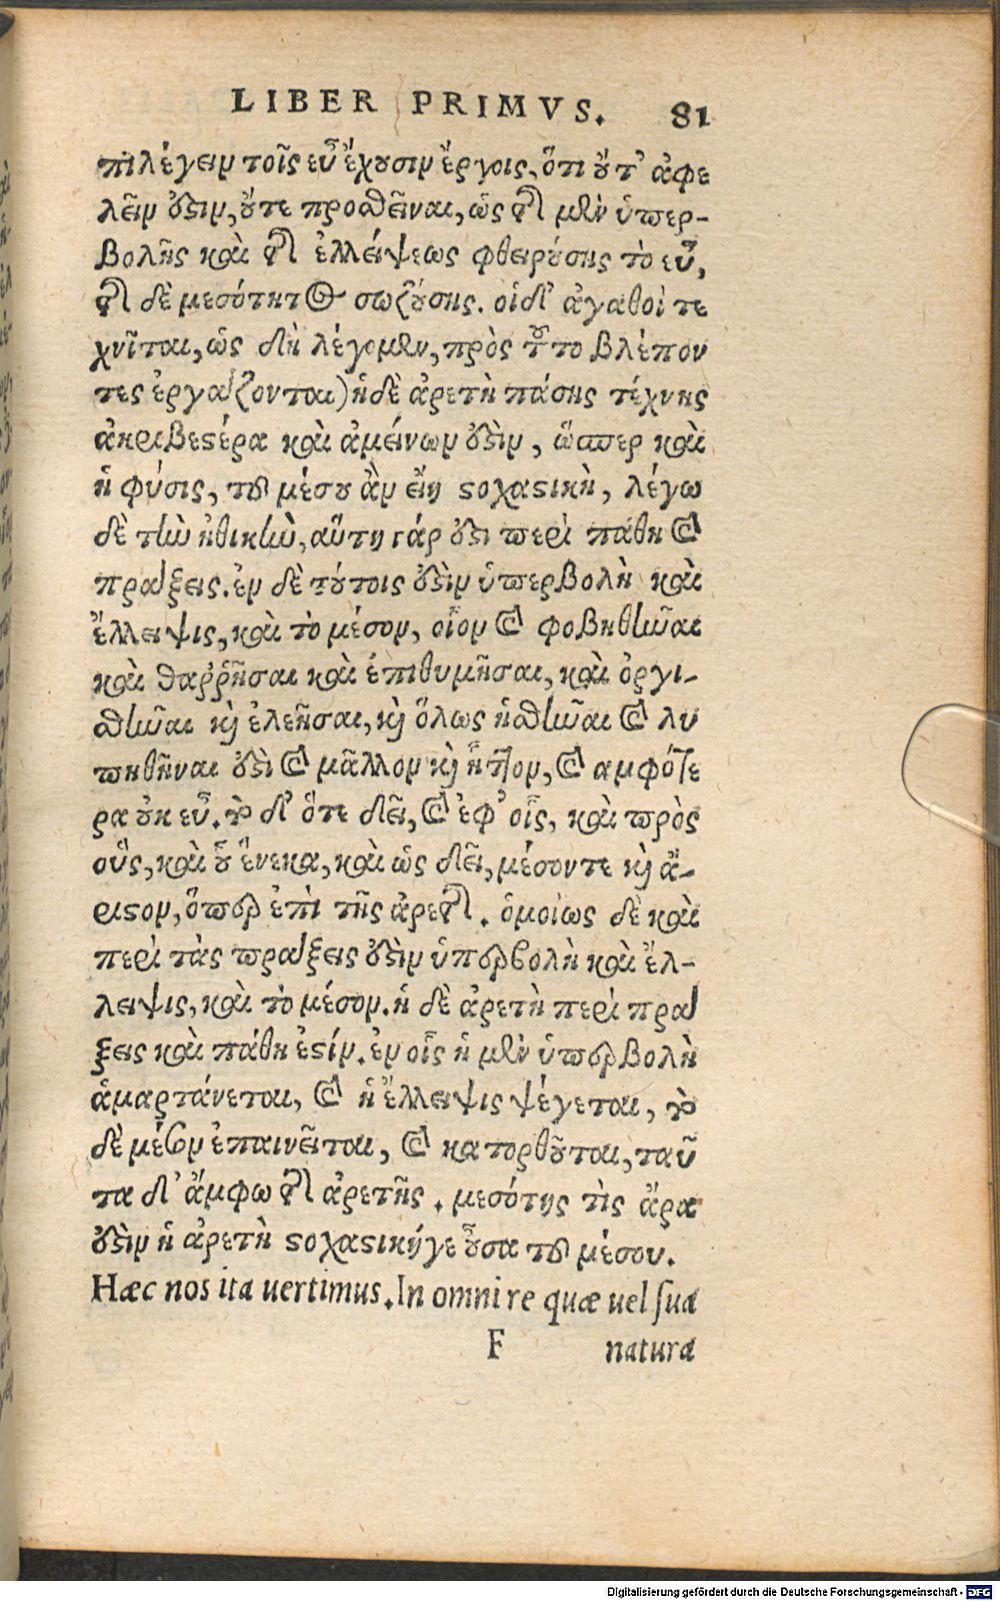 LIBER PRIMVS. 81
πιλέγειν τοῖς εὖ ἔχουσιν ἔργοις, ὅτι οὔτ' ἀφε
λεῖν ἔστιν, οὔτε προσθεῖναι, ὡς τῆς μὲν ὑπερ-
βολῆς καὶ τῆς ἐλλείψεως φθειρούσης τὸ εὖ,
τῆς δὲ μεσότητος σωζούσης. οἱ δ' ἀγαθοὶ τε
χνῖται, ὡς δὴ λέγομεν, πρὸς τοῦτο βλέπον
τες ἐργάζονται) ἡ δὲ ἀρετὴ πάσης τέχνης
ἀκριβεστέρα καὶ ἀμείνων ἐστὶν, ὥσπερ καὶ
ἡ φύσις, τοῦ μέσου ἂν εἴη στοχαστικὴ, λέγω
δὲ τὴν ἠθικὴν, αὕτη γάρ ἐστι περὶ πάθη καὶ
πράξεις. ἐν δὲ τούτοις ἐστὶν ὑπερβολὴ καὶ
ἔλλειψις, καὶ τὸ μέσον, οἷον καὶ φοβηθῆναι
καὶ θαῤῥῆσαι καὶ ἐπιθυμῆσαι, καὶ ὀργι-
σθῆναι καὶ ἐλεῆσαι, καὶ ὅλως ἡσθῆναι καὶ λυ
πηθῆναι ἐστὶ καὶ μᾶλλον καὶ ἧττον, καὶ αμφότε
ρα οὐκ εὖ. τὸ δ' ὅτε δεῖ, καὶ ἐφ' οἷς, καὶ πρὸς
οὓς, καὶ οὗ ἕνεκα, καὶ ὡς δεῖ, μέσον τε καὶ ἄ-
ριστον, ὅπερ ἐπὶ τῆς ἀρετῆς. ὁμοίως δὲ καὶ
περὶ τὰς πράξεις ἐστὶν ὑπερβολὴ καὶ ἔλ-
λειψις, καὶ τὸ μέσον. ἡ δὲ ἀρετὴ περὶ πρά
ξεις καὶ πάθη ἐστίν. ἐν οἷς ἡ μὲν ὑπερβολὴ
ἁμαρτάνεται, καὶ ἡ ἔλλειψις ψέγεται, τὸ
δὲ μέσον ἐπαινεῖται, καὶ κατορθοῦται, ταῦ
τα δ' ἄμφω τῆς ἀρετῆς. μεσότης τὶς ἄρα
ἐστὶν ἡ ἀρετὴ στοχαστικήγε οὖσα τοῦ μέσου.
Hæc nos ita uertimus. In omni re quæ uel sua
F natura
Digitalisierung gefördert durch die Deutsche Forschungsgemeinschaft - DFG